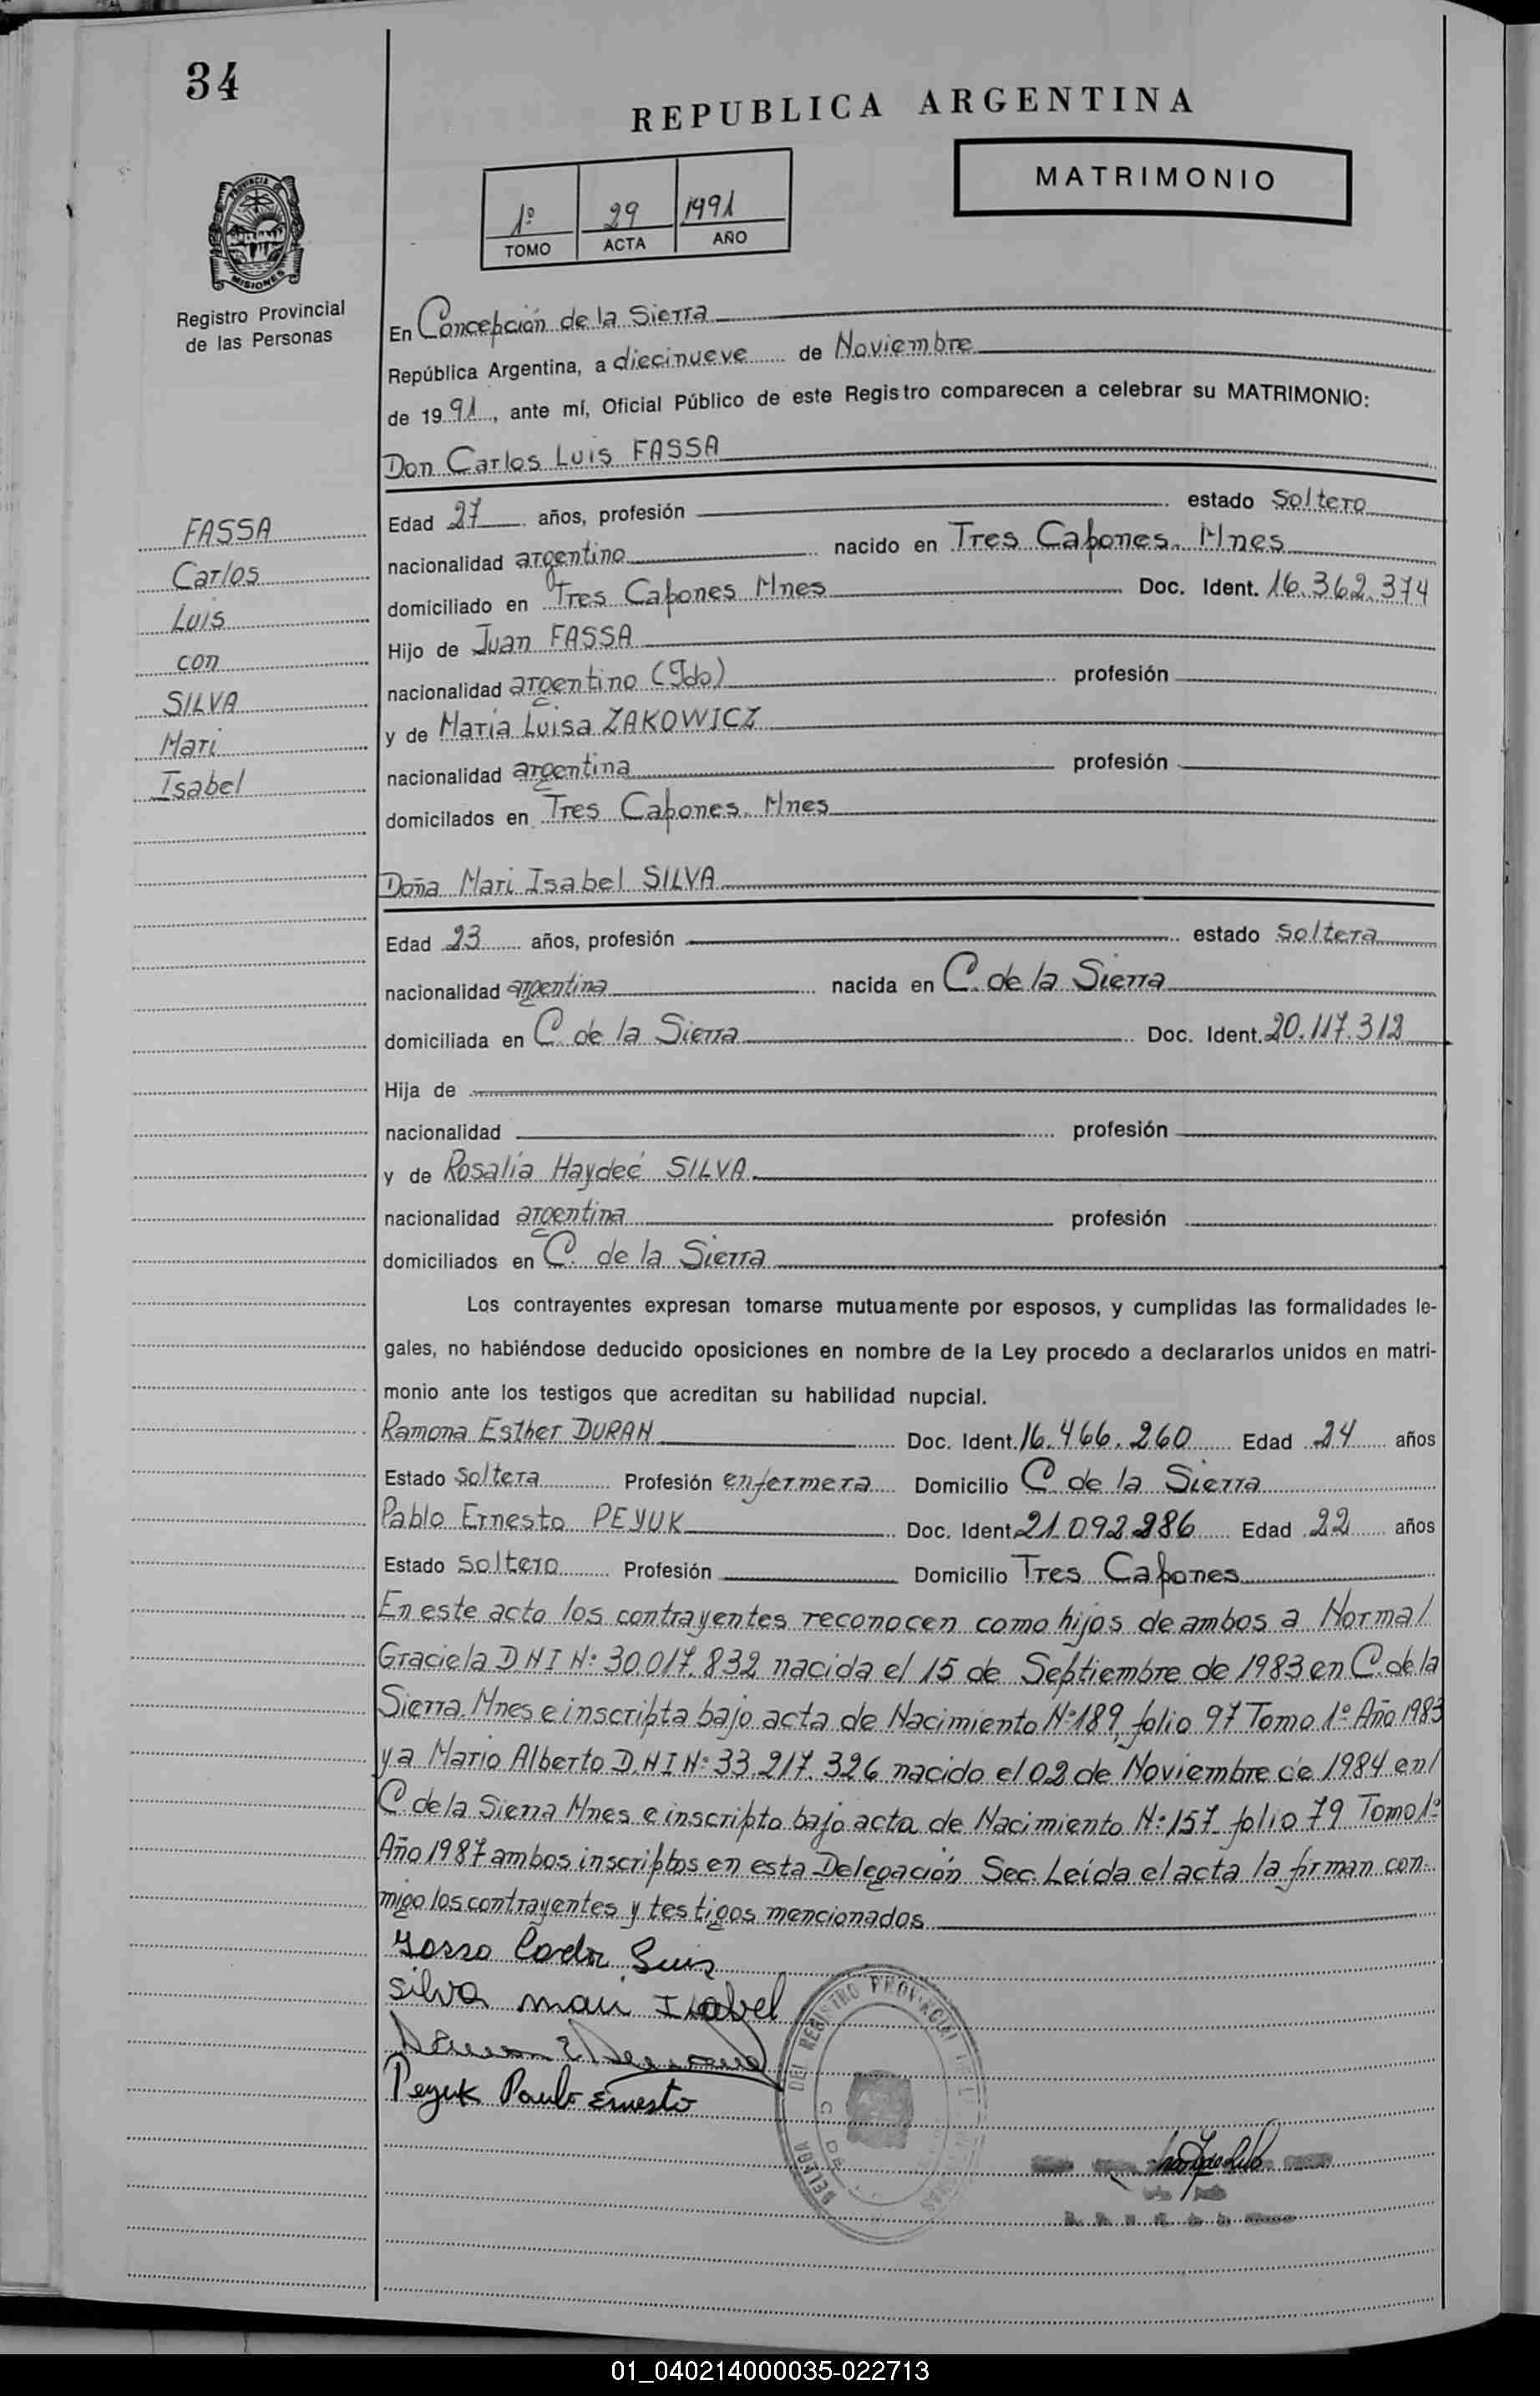 34
REPUBLICA ARGENTINA
MATRIMONIO
1º 29 1991
TOMO ACTA AÑO
PROVINCIA DE
MISIONES
Registro Provincial
de las Personas
En Concepción de la Sierra
República Argentina, a diecinueve de Noviembre
de 1991, ante mí, Oficial Público de este Registro comparecen a celebrar su MATRIMONIO:
Don Carlos Luis FASSA
FASSA
Carlos
Luis
con
SILVA
Mari
Isabel
Edad 27 años, profesión estado soltero
nacionalidad argentino nacido en Tres Capones. Mnes
domiciliado en Tres Capones Mnes Doc. Ident. 16.362.374
Hijo de Juan FASSA
nacionalidad argentino (Fdo) profesión
y de María Luisa ZAKOWICZ
nacionalidad argentina profesión
domicilados en Tres Capones. Mnes
Doña Mari Isabel SILVA
Edad 23 años, profesión estado soltera
nacionalidad argentina nacida en C. de la Sierra
domiciliada en C. de la Sierra Doc. Ident. 20.117.312
Hija de
nacionalidad profesión
y de Rosalía Haydeé SILVA
nacionalidad argentina profesión
domiciliados en C. de la Sierra
Los contrayentes expresan tomarse mutuamente por esposos, y cumplidas las formalidades le-
gales, no habiéndose deducido oposiciones en nombre de la Ley procedo a declararlos unidos en matri-
monio ante los testigos que acreditan su habilidad nupcial.
Ramona Esther DURAN Doc. Ident. 16.466.260 Edad 24 años
Estado soltera Profesión enfermera Domicilio C. de la Sierra
Pablo Ernesto PEYUK Doc. Ident. 21.092.286 Edad 22 años
Estado soltero Profesión Domicilio Tres Capones
En este acto los contrayentes reconocen como hijos de ambos a Norma
Graciela DNI Nº 30.017.832 nacida el 15 de Septiembre de 1983 en C. de la
Sierra. Mnes e inscripta bajo acta de Nacimiento Nº 189, folio 97 Tomo 1º Año 1983
y a Mario Alberto D.N I Nº 33.217.326 nacido el 02 de Noviembre de 1984 en
C. de la Sierra Mnes e inscripto bajo acta de Nacimiento Nº 157 folio 79 Tomo 1º
Año 1987 ambos inscriptos en esta Delegación Sec. Leída el acta la firman con-
migo los contrayentes y testigos mencionados
Fassa Carlos Luis
Silva Mari Isabel
Peyuk Paulo Ernesto
DEL REGISTRO PROVINCIAL
01_040214000035-022713